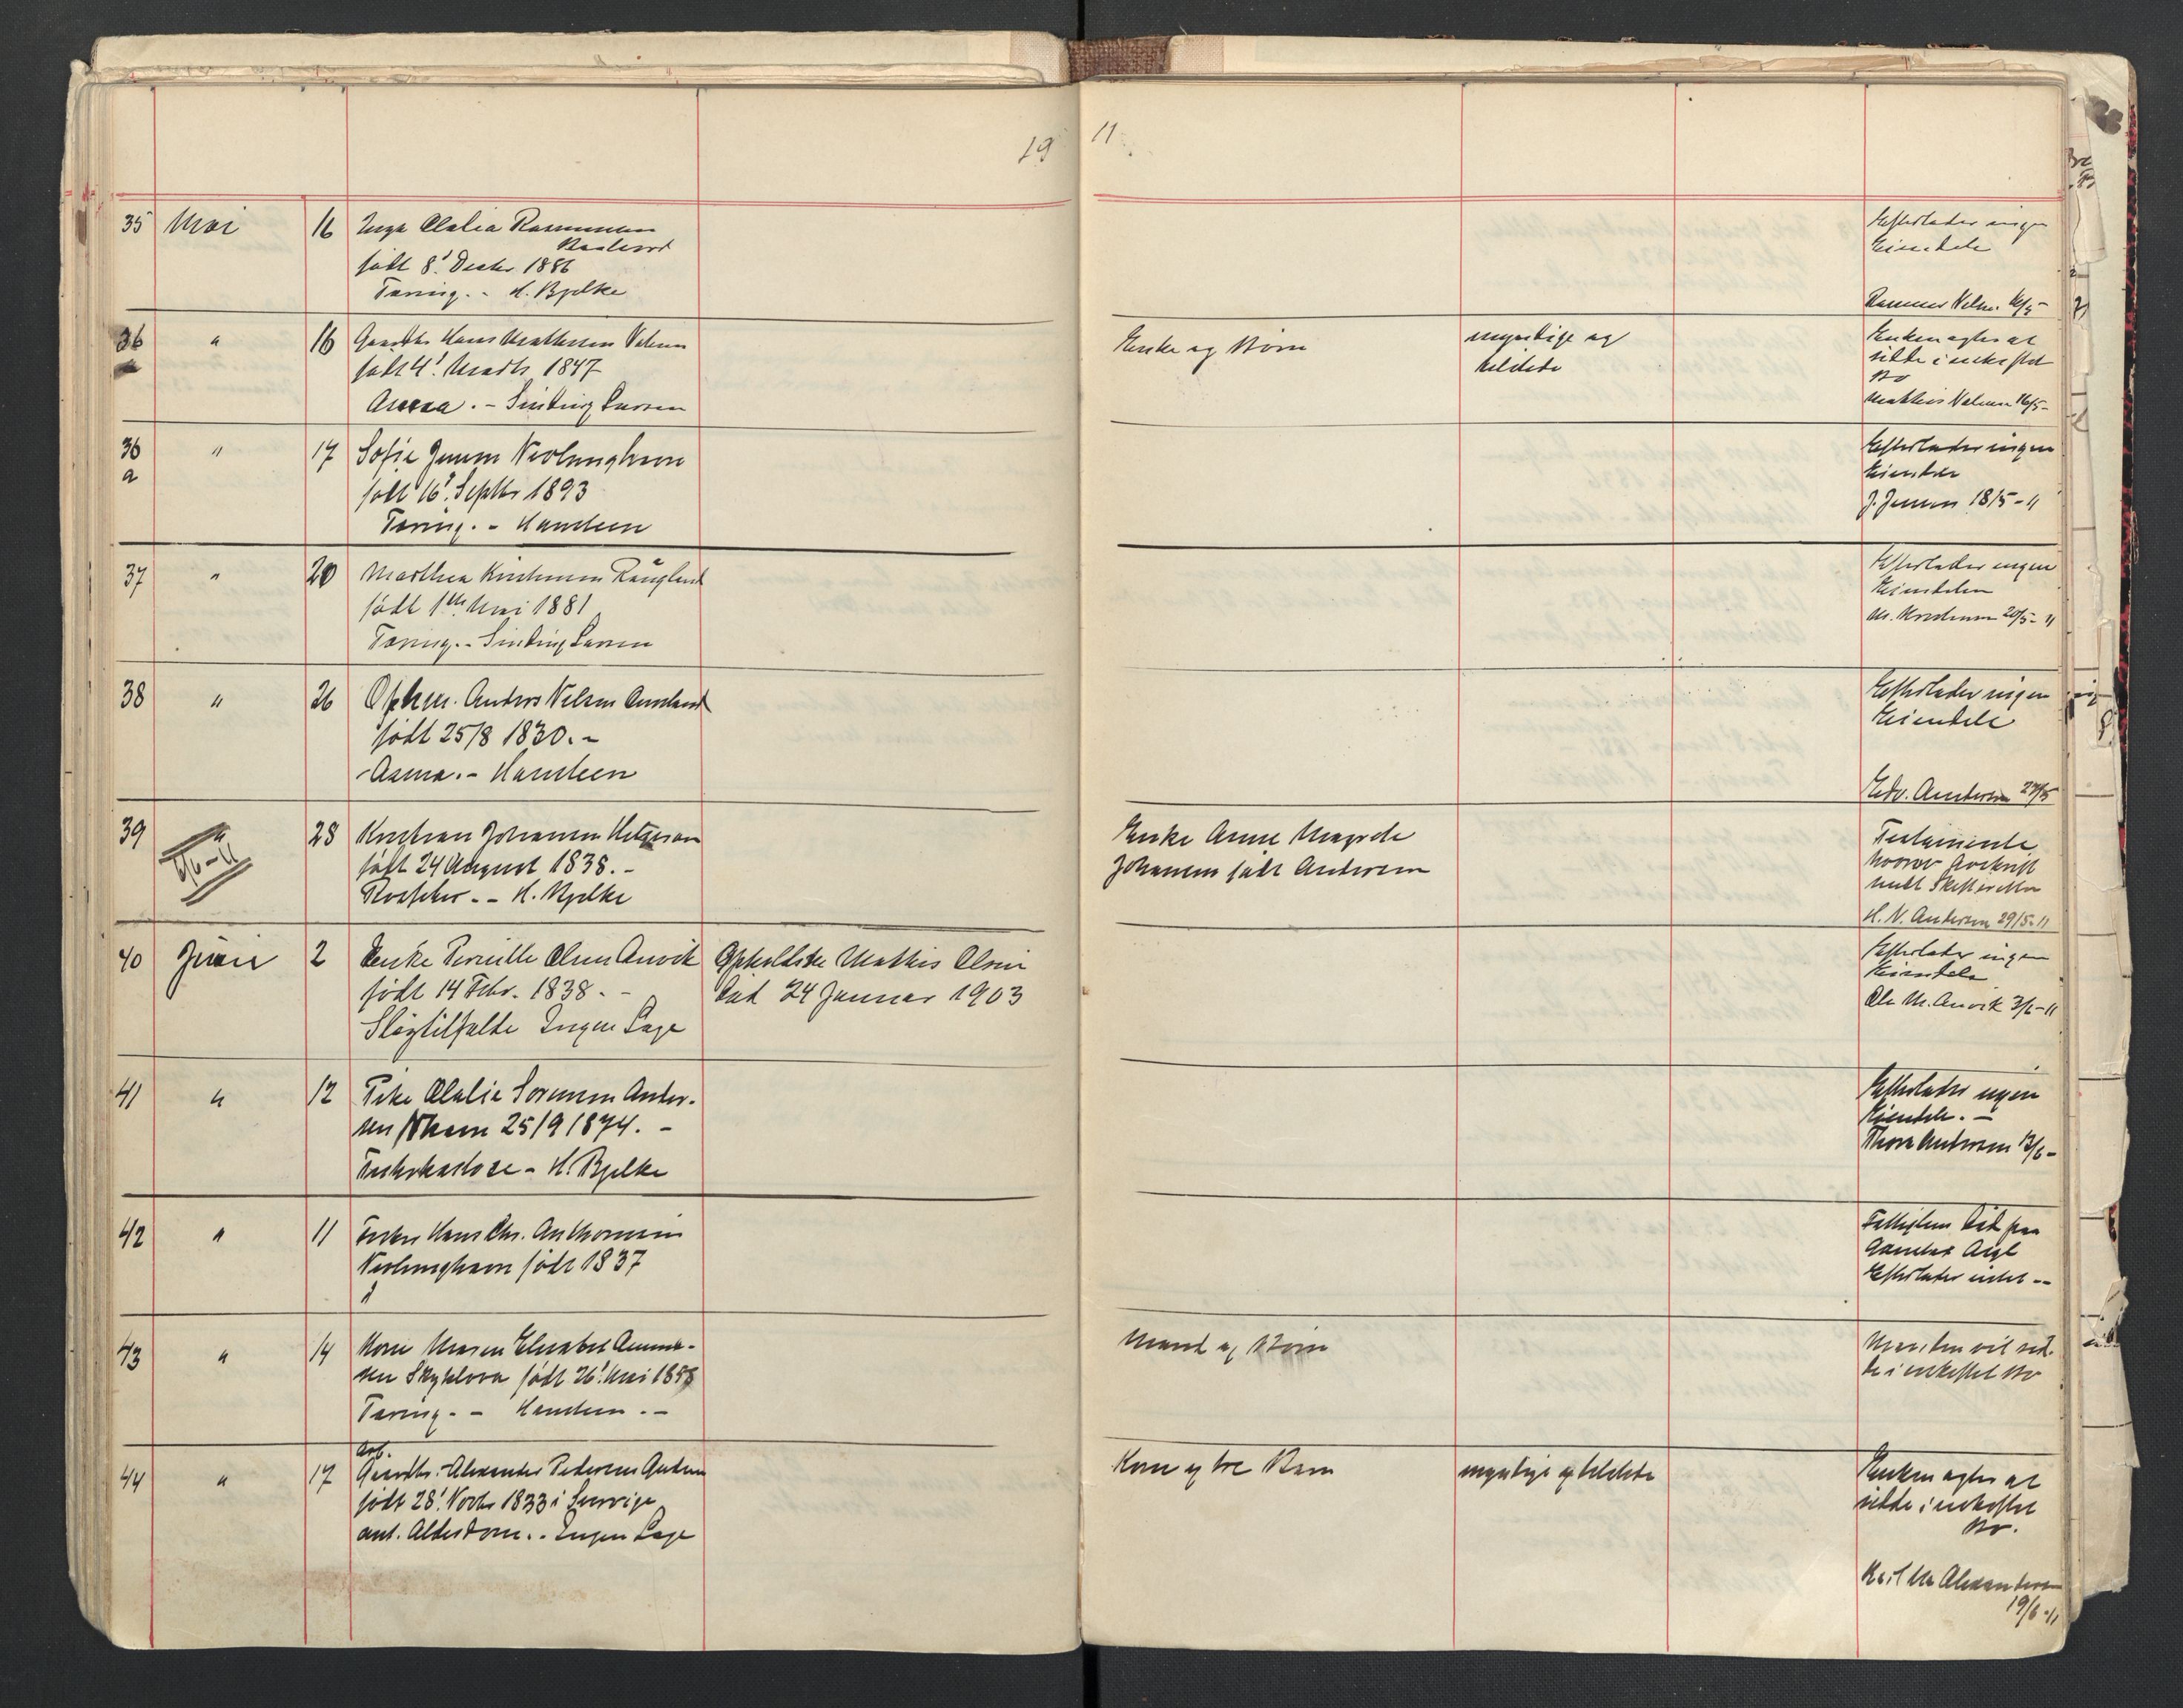 19 11
35 Mai 16 Inga Olalia Rasmussen
født 8' Decbr 1886
Tæring. - H. Bjelke
Efterlader ingen
Eiendele
Rasmus Nelsen 16/5-
36 " 16 Gaardbr Hans Mathisen
født 4' Marts 1847
- Sinding Larsen
Enke og Børn
myndige og
Enken agter at
sidde i uskiftet
Bo
Mathias 16/5-
36 a " 17 Sofie Jensen Nevlunghavn
født 16' Septbr 1893
Tæring. - Hansteen
Efterlader ingen
Eiendele
J. Jensen 18/5-11
37 " 20 Marthea Kristensen
født 1ste Mai 1881
Tæring. - Sinding Larsen
Efterlader ingen
Eiendele
M. Kristensen 20/5-11
38 " 26 Anders Nelsen
født 25/8 1830. -
- Hansteen
Efterlader ingen
Eiendele
Edv. Andersen 27/5
39 28 Kristian Johansen
født 24 August 1838. -
- H. Bjelke
Enke Anne
Johansen født Andersen
Testamente
H. N. Andersen 29/5-11
40 Juni 2 Enke Pernille Olsen Anvik
født 14 Febr. 1838. -
Slagtilfælde Ingen Læge
Opholdsbr Mathis Olsen
død 24 Januar 1903
Efterlader ingen
Eiendele
Ole M. Anvik 3/6-11
41 " 12 Pike Olalie Sørensen Ander-
sen 25/9 1874. -
Tuberkulose - H. Bjelke
Efterlader ingen
Eiendele. -
Thora Andersen 13/6-
42 " 11 Hans Chr. Anthonsen
Nevlunghavn født 1837
Fattiglem død paa
Efterlader intet --
43 " 14 Kone Maren Elisabet
født 26' Mai
Tæring. - Hansteen. -
Mand og Børn
Manden vil sid-
de i uskiftet Bo
44 " 17 Arb.
Gaardbr. Alexander Pedersen
født 28' Novbr 1833 i Sverige
ant. Alderdom. - Ingen Læge
Kone og tre Børn
myndige og
Enken agter at
sidde i uskiftet
Bo.
Alexandersen
19/6-11